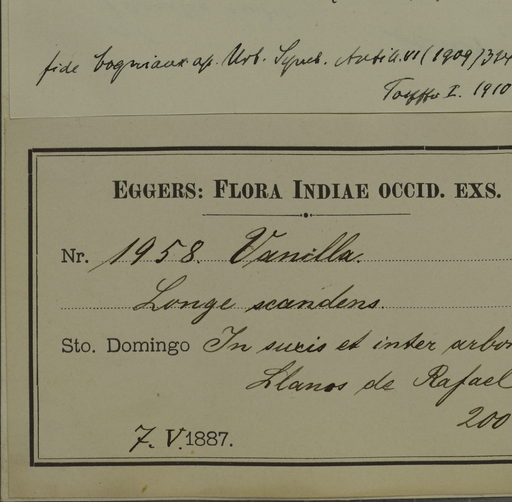 fide Cogniaux ap. Urb. Symb. Antill. VI (1909) 324
I. 1910
EGGERS: FLORA INDIAE OCCID. EXS.
Nr. 1958. Vanilla.
Longe scandens.
Sto. Domingo In et inter arbor
Llanos de Rafael
200
7. V. 1887.